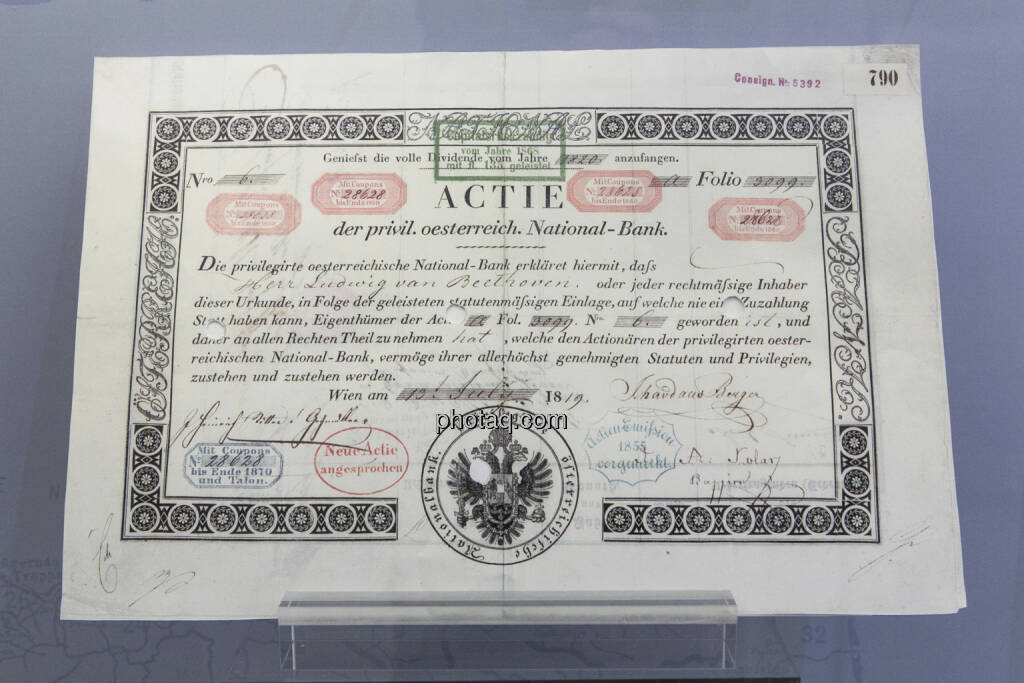 Consign. No. 5392
790
vom Jahre 1868
mit fl. 135 geleistet
Geniefst die volle Dividende vom Jahre 1820 anzufangen.
Nro 6.
Mit Coupons
No. 28628
bis Ende 1860
a Folio 3099.
ACTIE
der privil. oesterreich. National-Bank.
Die privilegirte oesterreichische National-Bank erkläret hiermit, dafs
Herr Ludwig van Beethoven. oder jeder rechtmäfsige Inhaber
dieser Urkunde, in Folge der geleisteten statutenmäfsigen Einlage, auf welche nie eine Zuzahlung
Statt haben kann, Eigenthümer der Act. a Fol. 3099. No. 6. geworden ist, und
daher an allen Rechten Theil zu nehmen hat, welche den Actionären der privilegirten oester-
reichischen National-Bank, vermöge ihrer allerhöchst genehmigten Statuten und Privilegien,
zustehen und zustehen werden.
Wien am 13t July 1819.
Mit Coupons
No. 28628
bis Ende 1870
und Talon.
Neue Actie
angesprochen
Actien Emission
1855
vorgemerkt
Oesterreichische Nationalbank.
photaq.com
32